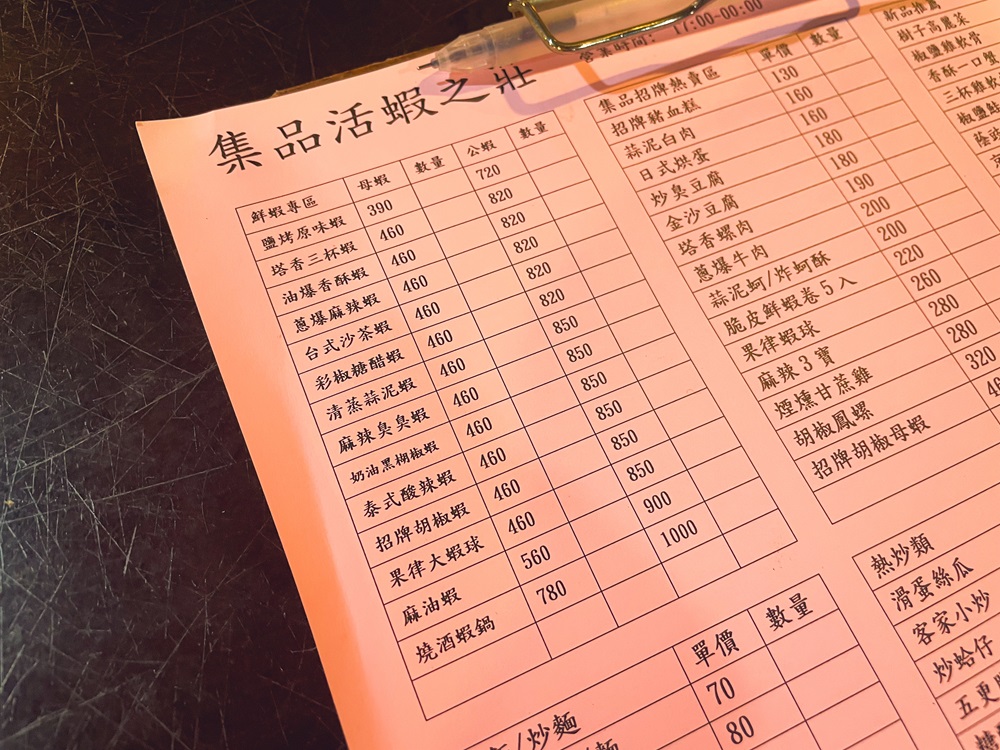 集品活蝦之壯
營業時間: 17:00-00:00
鮮蝦專區 母蝦 數量 公蝦 數量
鹽烤原味蝦 390 720
塔香三杯蝦 460 820
油爆香酥蝦 460 820
蔥爆麻辣蝦 460 820
台式沙茶蝦 460 820
彩椒糖醋蝦 460 820
清蒸蒜泥蝦 460 850
麻辣臭臭蝦 460 850
奶油黑楜椒蝦 460 850
泰式酸辣蝦 460 850
招牌胡椒蝦 460 850
果律大蝦球 460 850
麻油蝦 560 900
燒酒蝦鍋 780 1000
單價 數量
/炒麵 70
麵 80
集品招牌熱賣區 單價 數量
招牌豬血糕 130
蒜泥白肉 160
日式烘蛋 160
炒臭豆腐 180
金沙豆腐 180
塔香螺肉 190
蔥爆牛肉 200
蒜泥蚵/炸蚵酥 200
脆皮鮮蝦卷5入 220
果律蝦球 260
麻辣3寶 280
煙燻甘蔗雞 280
胡椒鳳螺 320
招牌胡椒母蝦
熱炒類
滑蛋絲瓜
客家小炒
炒蛤仔
五更
新品推薦
樹子高麗菜
椒鹽雞軟骨
香酥一口蟹
三杯雞軟
椒鹽